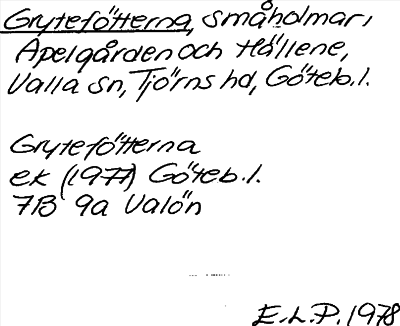 Grytefötterna, småholmar i
Apelgården och Hällene,
Valla sn, Tjörns hd, Göteb.l.
Grytefötterna
ek (1977) Göteb.l.
7B 9a Valön
E.L.P. 1978